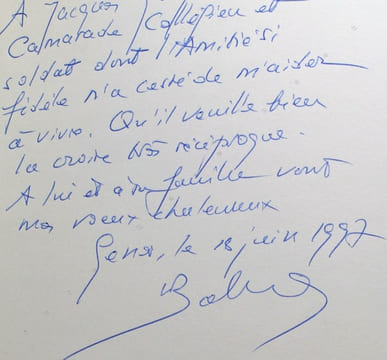 A Jacques
Camarade
soldat dont l'Amitié si
fidèle n'a cessé de m'aider
à vivre. Qu'il veuille bien
la croire réciproque.
A lui et à sa famille vont
mes vœux chaleureux
le 18 juin 1997